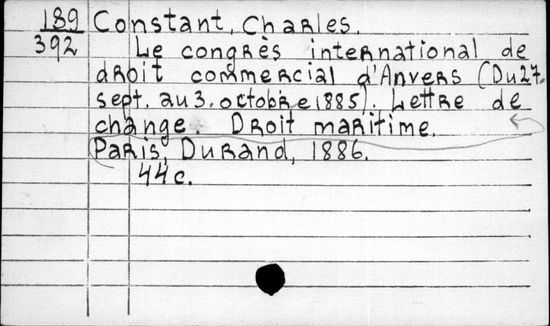 189 Constant, Charles.
392 Le congrès international de
droit commercial d'Anvers (Du 27.
sept. au 3. octobre 1885). Lettre de
change. Droit maritime.
Paris, Durand, 1886.
44 c.